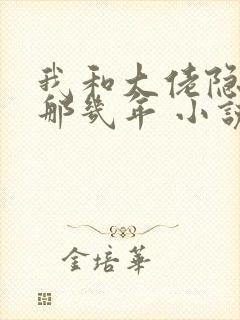 我和大佬隐
那几年 小说
金培华